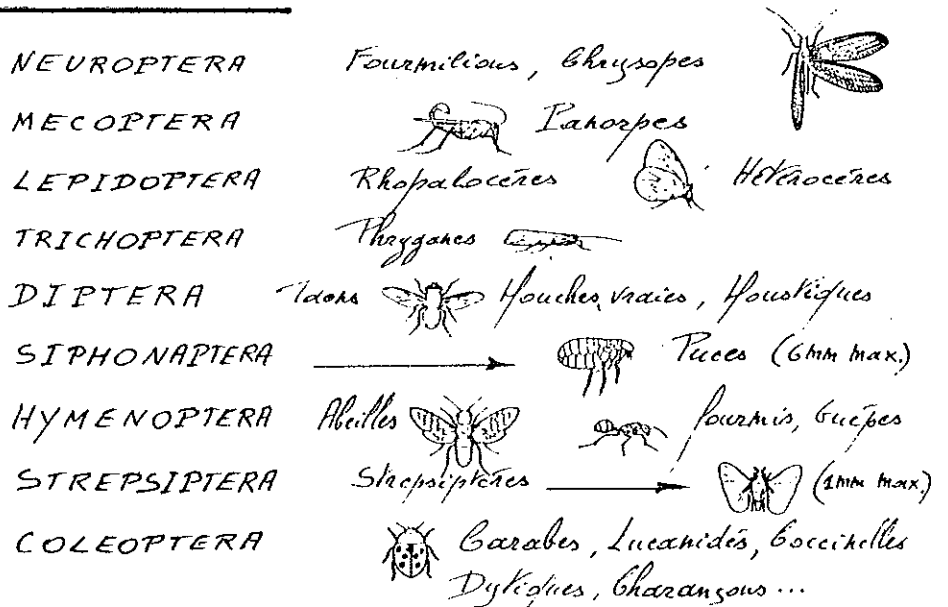 NEUROPTERA Fourmilions, Chrysopes
MECOPTERA Panorpes
LEPIDOPTERA Rhopalocères Hétérocères
TRICHOPTERA Phryganes
DIPTERA Taons Mouches vraies, Moustiques
SIPHONAPTERA Puces (6mm max.)
HYMENOPTERA Abeilles fourmis, Guêpes
STREPSIPTERA Strepsiptères (1mm max.)
COLEOPTERA Carabes, Lucanidés, Coccinelles
Dytiques, Charançons ...